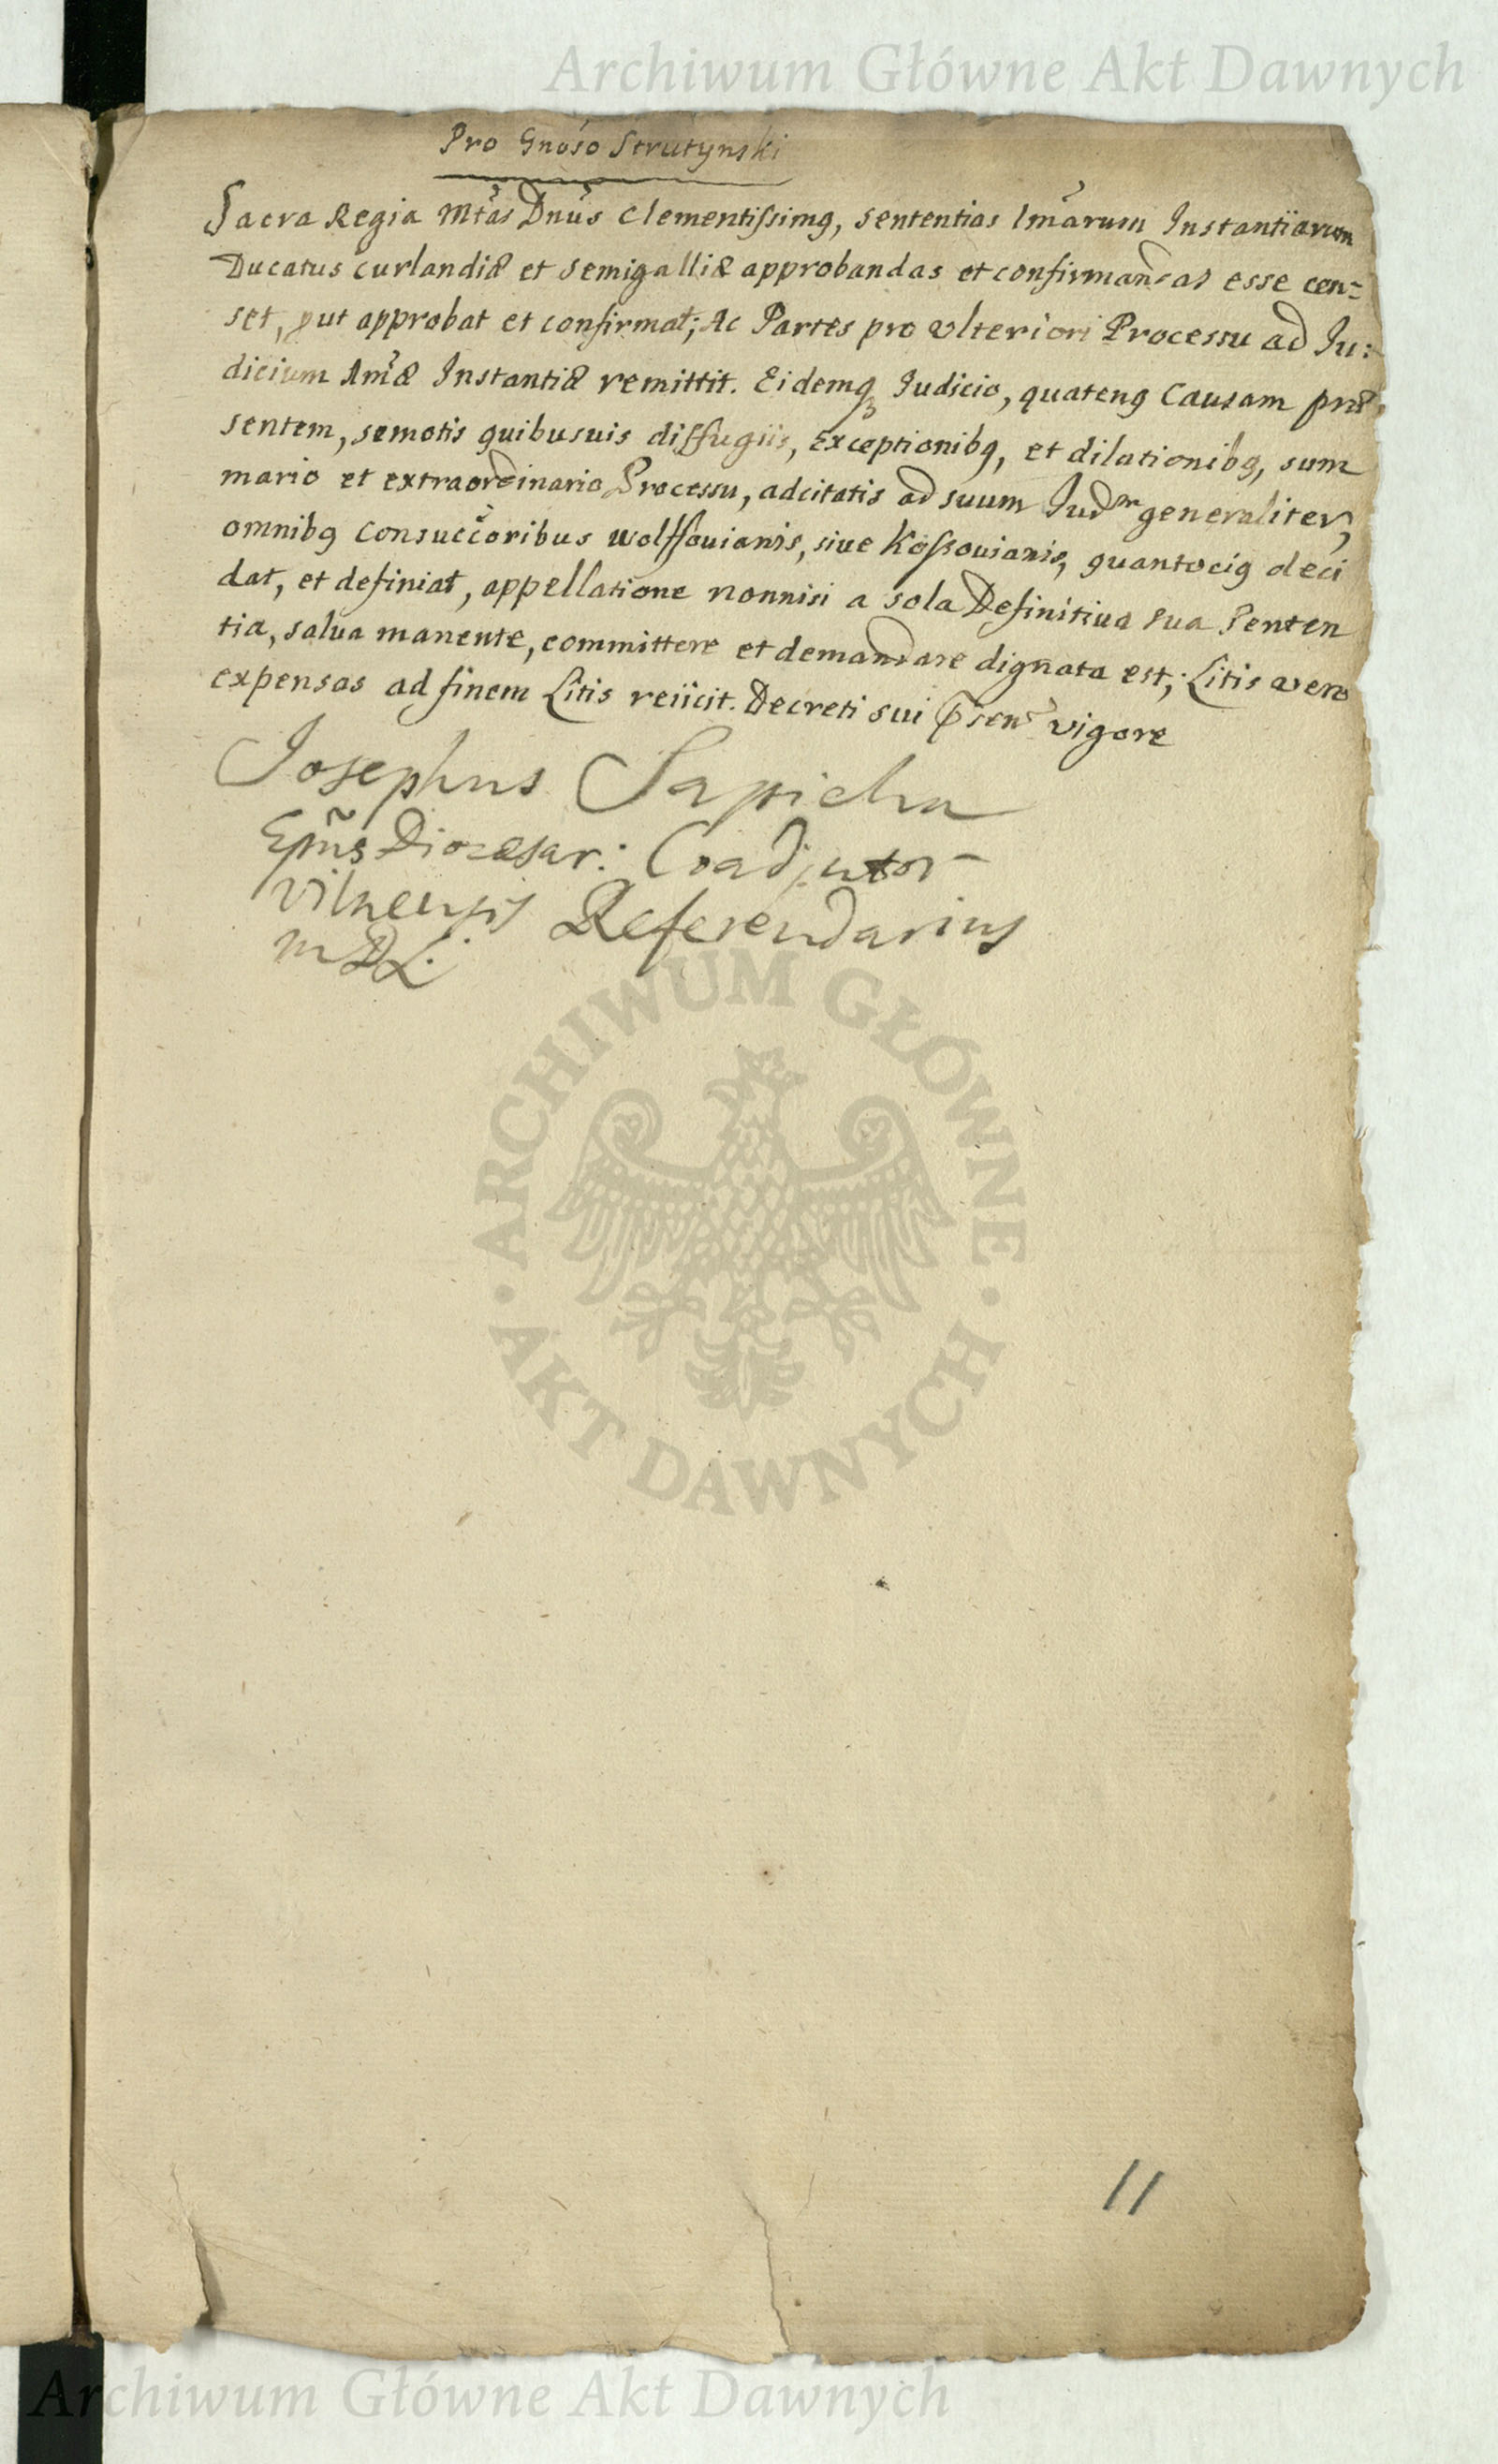 Archiwum Główne Akt Dawnych
Pro Gnóso Strutynski
Sacra Regia Mtás Dnús Clementissimꝯ, sententias Imárum Instantiarum
Ducatus Curlandiæ et Semigalliæ approbandas et confirmandas esse cen=
set, ꝓut approbat et confirmat; Ac Partes pro vlteriori Processu ad Iu:
dicium Amǽ Instantiæ remittit. Eidemqꝫ Iudicio, quatenꝯ Causam præ
sentem, semotis quibusuis diffugiis, Exceptionibꝯ, et dilationibꝯ, sum
mario et extraordinario Processu, adcitatis ad suum Iud generaliter,
omnibꝯ Consuccóribus Wolffouianis, siue Kossouianis, quantociꝯ deci
dat, et definiat, appellatione nonnisi a sola Definitiua sua Senten
tia, salua manente, committere et demandare dignata est; Litis vero
expensas ad finem Litis reiicit. Decreti sui p̄sen vigore
Josephus Sapieha
Epñs Diocæsar: Coadjutor
Vilnensis Referendarius
MDL.
ARCHIWUM GŁÓWNE · AKT DAWNYCH ·
11
Archiwum Główne Akt Dawnych